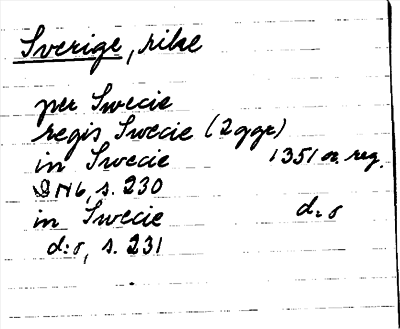 Sverige, rike
per Swecie
regis Swecie (2 ggr)
in Swecie 1351 or. reg.
DN6, s. 230
in Swecie d:o
d:o, s. 231